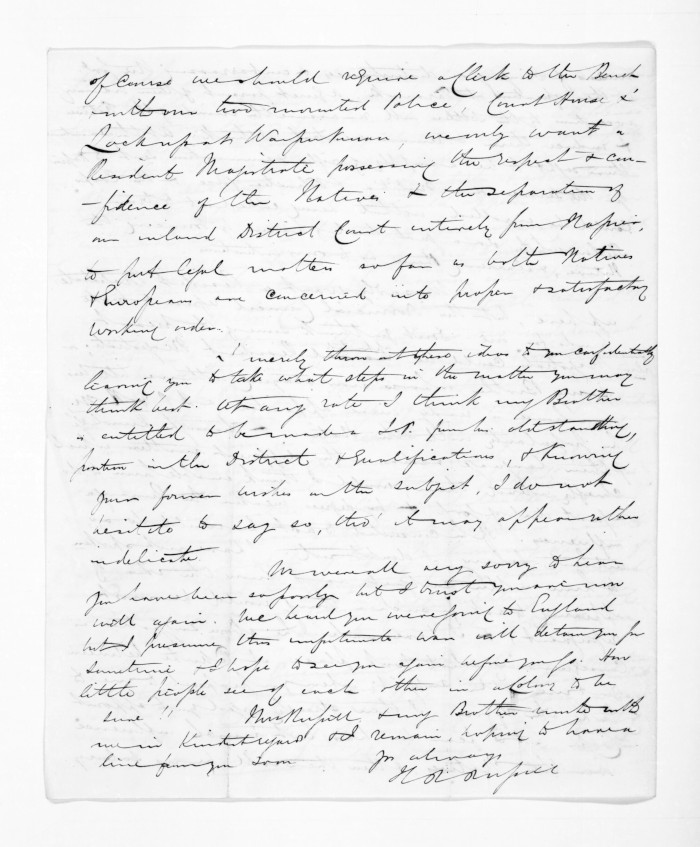 of course we should require a Clerk to the Bench
with our two mounted Police, Court House &
Lock up at Waipukurau, we only want a
Resident Magistrate possessing the respect & con-
-fidence of the Natives & the separation of
our inland District Court entirely from Napier,
to put legal matters so far as both Natives
& Europeans are concerned into proper & satisfactory
working order.
I merely throw out these ideas to you confidentially
leaving you to take what steps in the matter you may
think best. At any rate I think my Brother
is entitled to be made a J.P. from his old standing,
position in the District & qualifications, & knowing
your former wishes on the subject, I do not
hesitate to say so, tho' it may appear rather
indelicate
We were all very sorry to hear
you have been so poorly but I trust you are now
well again. We heard you were going to England
but I presume this unfortunate war will detain you for
sometime & I hope to see you again before you go. How
little people see of each other in a Colony to be
sure!! Mrs Russell & my Brother unite with
me in kindest regards & I remain, hoping to have a
line from you soon
Yrs always
H R Russell